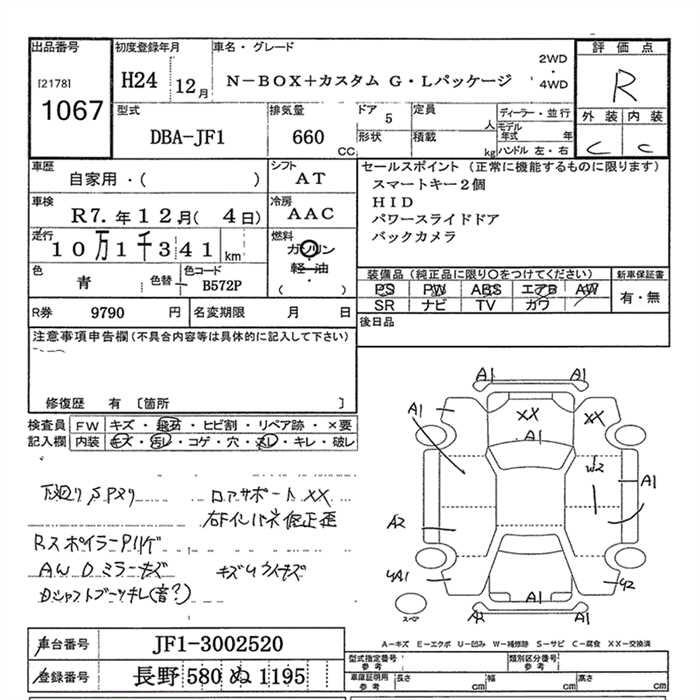 出品番号
[2178]
1067
初度登録年月
H24 12月
車名・グレード
N-BOX+カスタム G・Lパッケージ
2WD
・
4WD
評価点
R
外装 内装
C C
型式
DBA-JF1
排気量
660
CC
ドア 5
形状
定員
人
積載
kg
ディーラー・並行
モデル年式 年
ハンドル 左・右
車歴
自家用・( )
シフト
AT
車検
R7.年12月( 4日)
冷房
AAC
走行
10万1千341 km
燃料
ガソリン
軽油
・
( )
色
青
色替
色コード
B572P
R券 9790 円
名変期限 月 日
セールスポイント (正常に機能するものに限ります)
スマートキー2個
HID
パワースライドドア
バックカメラ
装備品 (純正品に限り○をつけてください)
PS PW ABS エアB AW
SR ナビ TV カワ
新車保証書
有・無
後日品
注意事項申告欄 (不具合内容等は具体的に記入して下さい)
修復歴 有 〔箇所 〕
検査員記入欄
FW キズ・飛石・ヒビ割・リペア跡・×要
内装 キズ・汚レ・コゲ・穴・スレ・キレ・破レ
下廻りSPヌリ
コアサポートXX
右Fインパネ修正歪
RスポイラーPハゲ
AWDミラーキズ
キズウスイキズ
Dシャフトブーツキレ(音?)
A1
A1
A1
XX
XX
A1
W2
A1
A2
A1
Y2
A1
A1
スペア
A-キズ E-エクボ U-凹み W-補修跡 S-サビ C-腐食 XX-交換済
車台番号
JF1-3002520
登録番号
長野 580 ぬ 1195
型式指定番号
参考
類別区分番号
参考
車庫証明用
参考
長さ cm
幅 cm
高さ cm